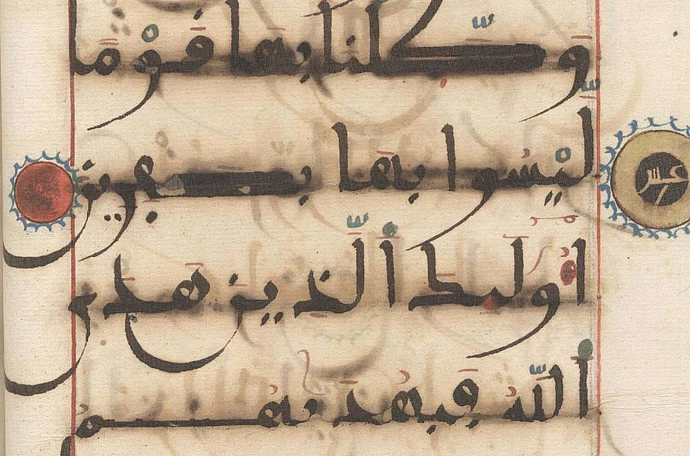 وكلنا بها قوما
ليسوا بها بكفرين
أولئك الذين هدى
الله فبهديهم
عشر